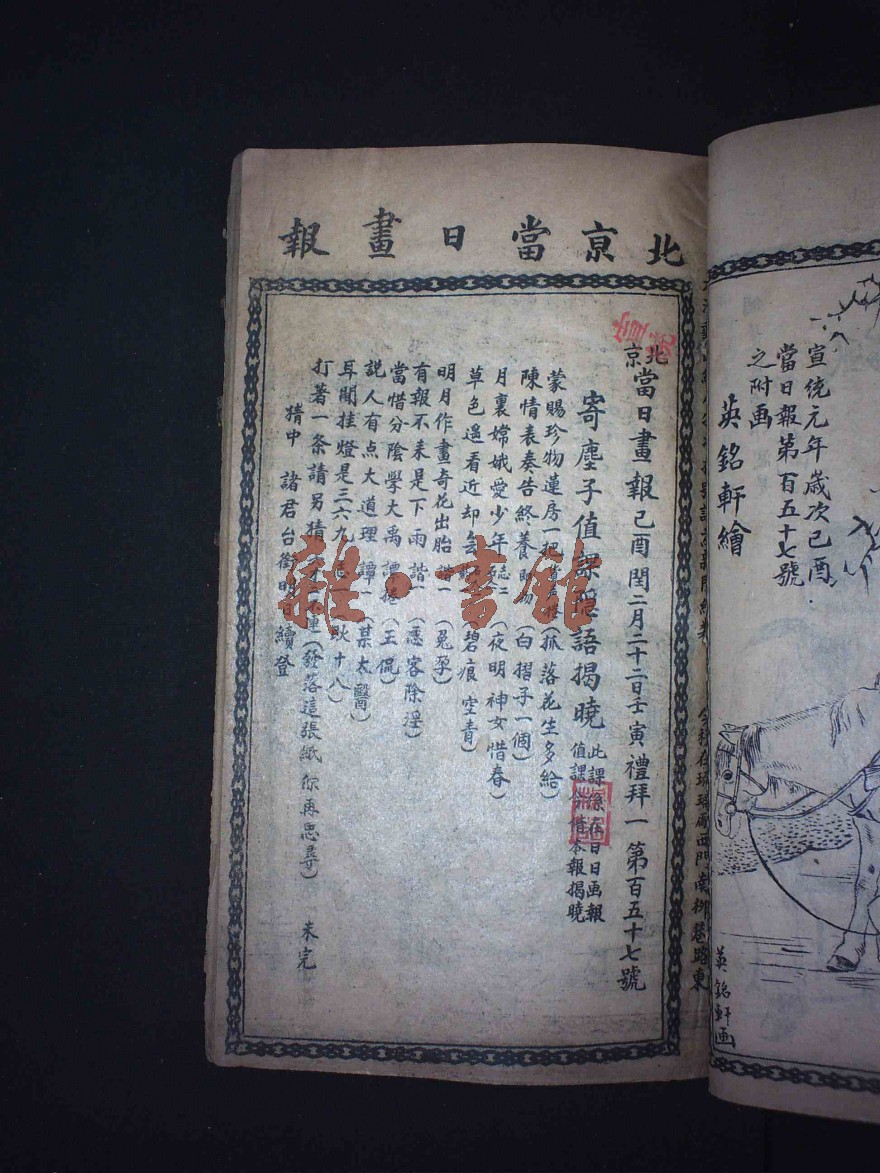 北京當日畫報
北京當日畫報己酉閏二月二十二日壬寅禮拜一第百五十七號
寄塵子值課隱語揭曉
此課係在日日画報
值課借本報揭曉
蒙賜珍物蓮房一把（抓落花生多給）
陳情表奏告終養（白摺子一個）
月裏嫦娥愛少年（夜明神女惜春）
草色遙看近却（碧痕空青）
明月作畫奇花出胎（兔孕）
有報不來是下雨諧（憑客除淫）
當惜分陰學大禹譚捲（王侃）
說人有点大道理譚一（某太醫）
耳閒挂燈是三六九（耿十八）
打著一条請另猜（發落這張紙你再思尋）未完
猜中諸君台銜明日續登
雜·書館
宣統元年歲次己酉
當日報第百五十七號
之附画
英銘軒繪
英銘軒画